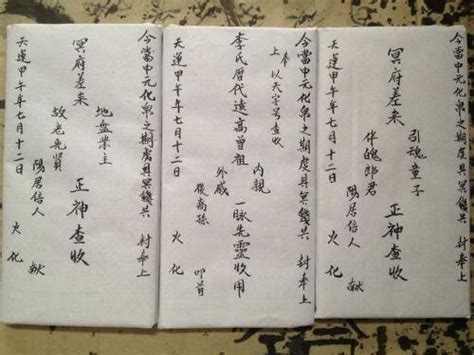 今當中元化帛之期虔具冥錢共 封奉上
引魂童子
冥府差来 正神查收
伴魄郎君
陽居信人 献
天運甲午年七月十二日 火化
今當中元化帛之期虔具冥錢共 封奉上
上奉 以天字号查收
内親
李氏歷代遠高曾祖 一脉先靈收用
外戚
裔孫 叩首
天運甲午年七月十二日 火化
今當中元化帛之期虔具冥錢共 封奉上
地盤業主
冥府差来 正神查收
故老先賢
陽居信人 献
天運甲午年七月十二日 火化